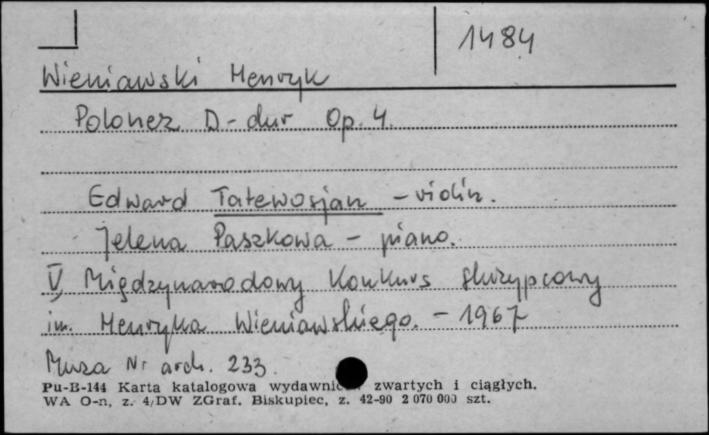 1484
Wieniawski Henryk
Polonez D-dur Op. 4.
Edward Tatewosjan - violin.
Jelena Paszkowa - piano.
V Międzynarodowy Konkurs Skrzypcowy
im. Henryka Wieniawskiego. - 1967
Muza Nr arch. 233.
Pu-B-144 Karta katalogowa zwartych i ciągłych.
WA O-n, z. 4/DW ZGraf. Biskupiec, z. 42-90 2 070 000 szt.